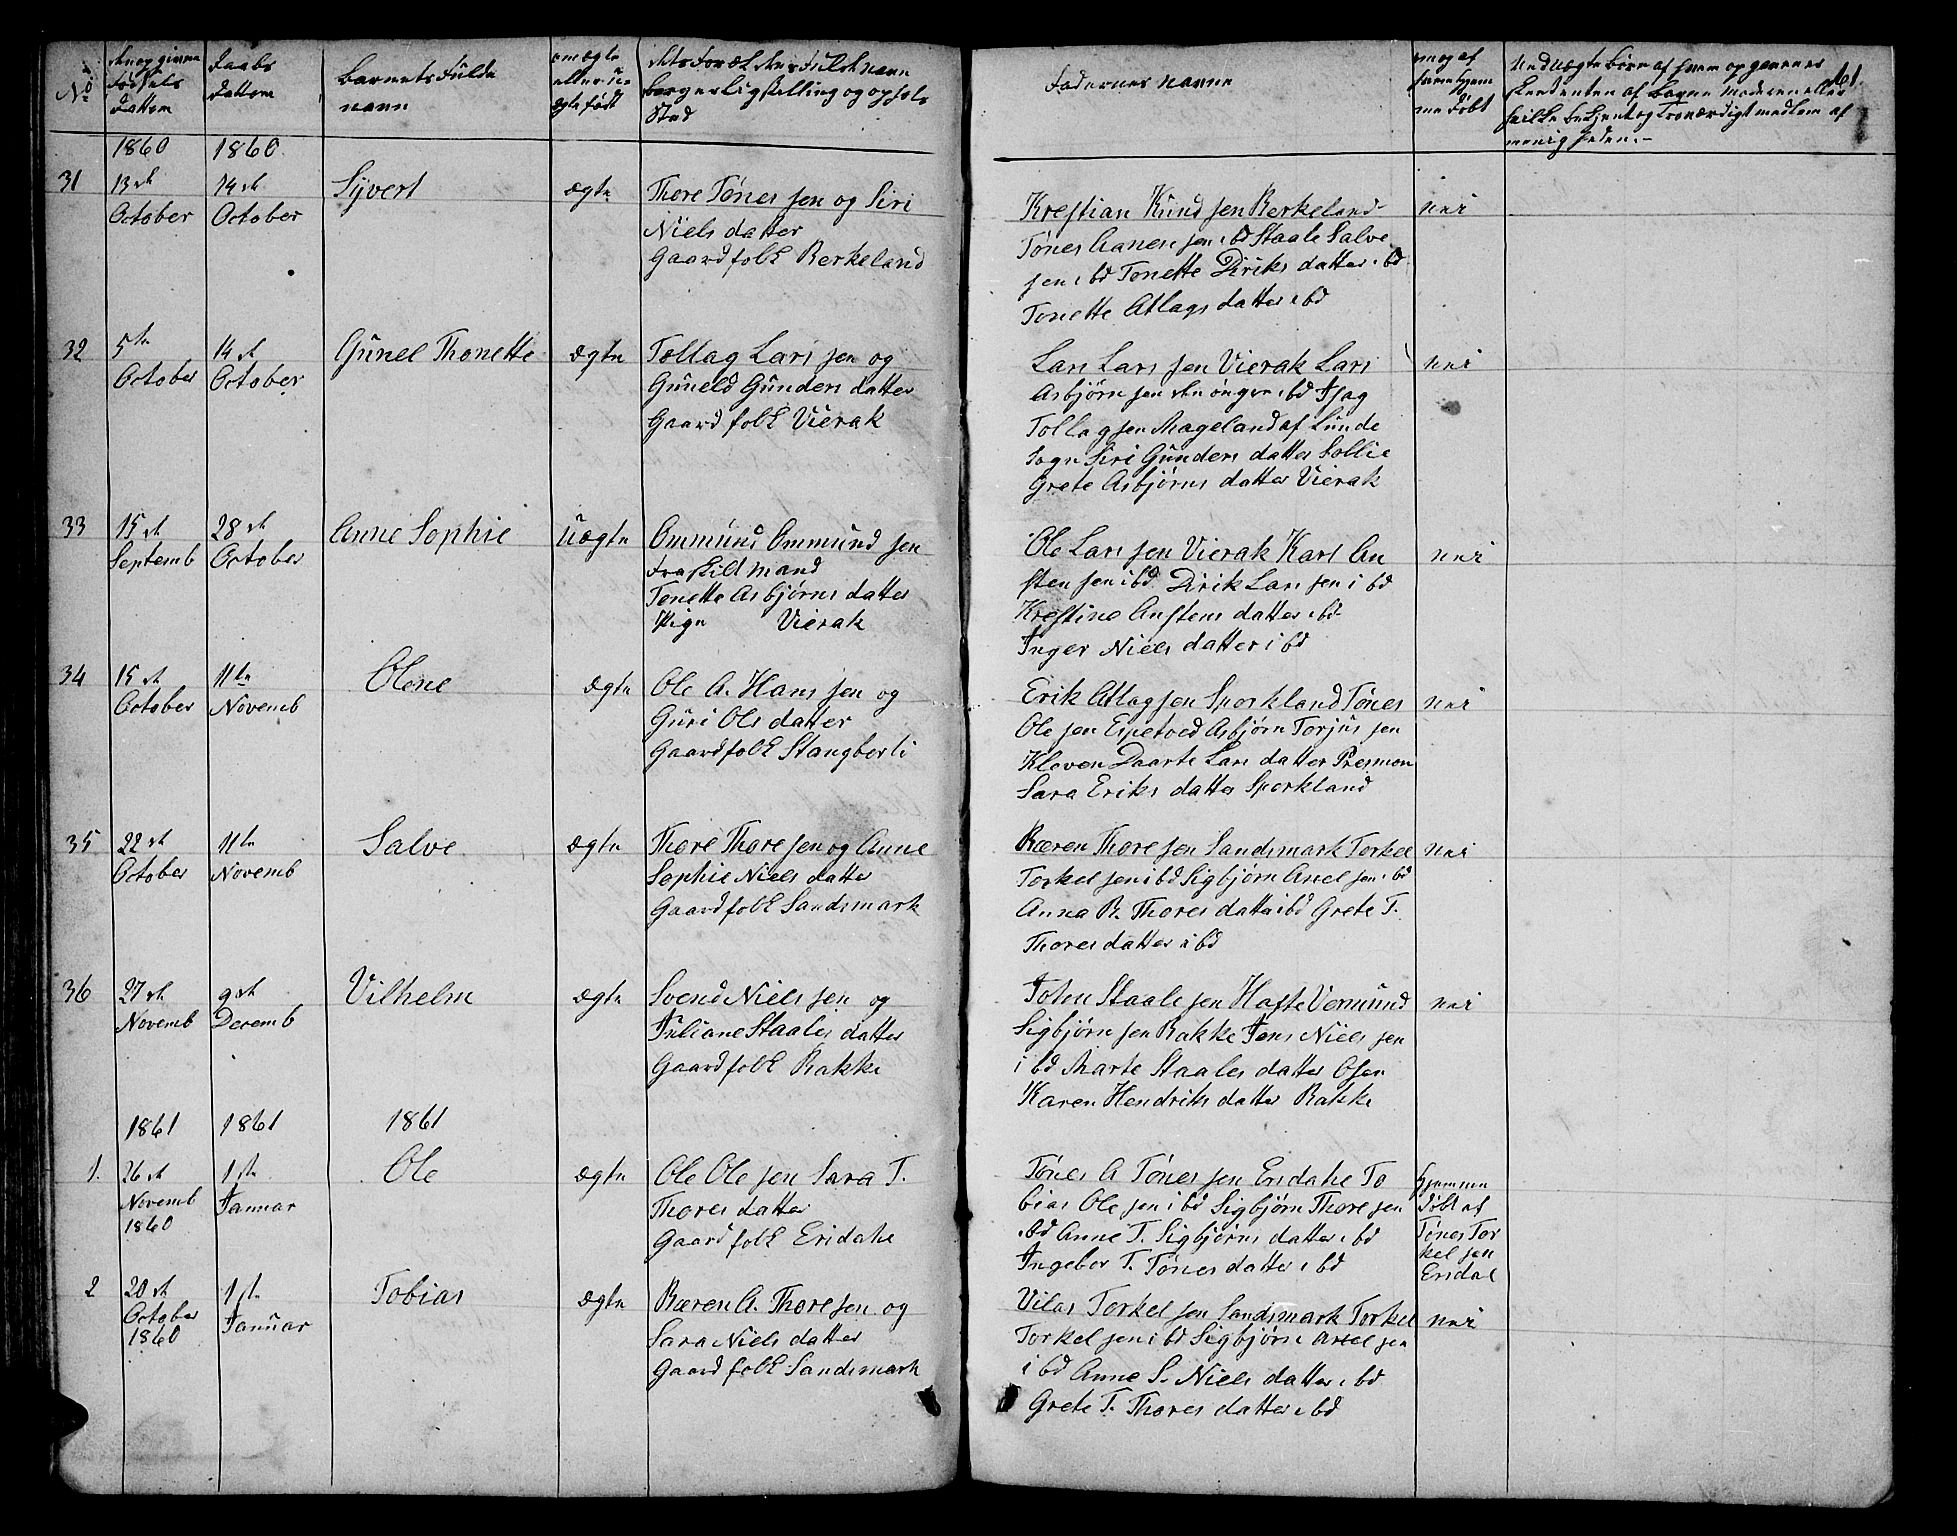 No
den opgivne
Fødsels
Dattom
Daabs
Dattom
Barnets Fulde
navn
om ægte
eller u¬
ægte født
dets Forældres Fulde navn
borgerlig stilling og ophols
Sted
Fadernes navne
om og af
hvem hjem
me døbt
Ved uægte børn af hvem opgivenes
af barne moderen eller
bekjent og troværdigt medlem af
menigheden.-
61.
1860 1860
31
13de
October
14de
October
Syvert
ægte
Thore Tønes sen og Siri
Niels datter
Gaardfolk Berkeland
Krestian Knud sen Berkeland
Tønes Aanen sen ibd Staale Salve
sen ibd Tonette Diriks datter ibd
Tonette Atlags datter ibd
nei
32
5te
October
14de
October
Gunel Thonette
ægte
Tollag Lars sen og
Guneld Gunders datter
Gaardfolk Vierak
Lars Lars sen Vierak Lars
Asbjørn sen den ønger ibd Isag
Tollag sen Mageland af Lunde
Sogn Siri Gunders datter Sollie
Grete Asbjørns datter Vierak
nei
33
15de
Septemb
28de
October
Anne Sophie
Uægte
Ommund Ommund sen
Fraskilt mand
Tonette Asbjørns datter
Pige Vierak
Ole Lars sen Vierak Karl An
sten sen ibd Dirik Lars sen i bd
Krestine Anstens datter ibd
Inger Niels datter i bd
nei
34
15de
October
11te
Novemb
Olene
ægte
Ole A. Hans sen og
Guri Ols datter
Gaardfolk Stangberli
Erik Atlag sen Sporkland Tønes
Ole sen Espetved Asbjørn Torjus sen
Kleven Daarte Lars datter Presmon
Sara Eriks datter Sporkland
nei
35
22de
October
11te
Novemb
Salve
ægte
Thore Thore sen og Anne
Sophie Niels datter
Gaardfolk Sandsmark
Bæren Thore sen Sandsmark Torkel
Torkel sen i bd Sigbjørn Axel sen ibd
Anna B. Thores datter ibd Grete T.
Thores datter i bd
nei
36
27de
Novemb
9de
Decemb
Vilhelm
ægte
Svend Niels sen og
Juliane Staales datter
Gaardfolk Bakke
John Staale sen Hafte Vermund
Sigbjørn sen Bakke Jens Niels sen
i bd Marte Staales datter Osen
Karen Hendriks datter Bakke
nei
1861 1861 1861
1.
26de
Novemb
1860
1ste
Januar
Ole
ægte
Ole Ole sen Sara T.
Thores datter
Gaardfolk Ersdahe
Tønes A Tønes sen Ersdahe To
bias Ole sen i bd Sigbjørn Thore sen
ibd Anne T. Sigbjørns datter ibd
Ingebor T. Tønes datter i bd
hjemme
døbt af
Tønes Tor
kel sen
Ersdal
2
20de
October
1860
1ste
Januar
Tobias
ægte
Bæren A. Thore sen og
Sara Niels datter
Gaardfolk Sandsmark
Vilas Torkel sen Sandsmark Torkel
Torkel sen i bd Sigbjørn Axsel sen
i bd Anne S. Niels datter ibd
Grete T. Thores datter ibd
nei